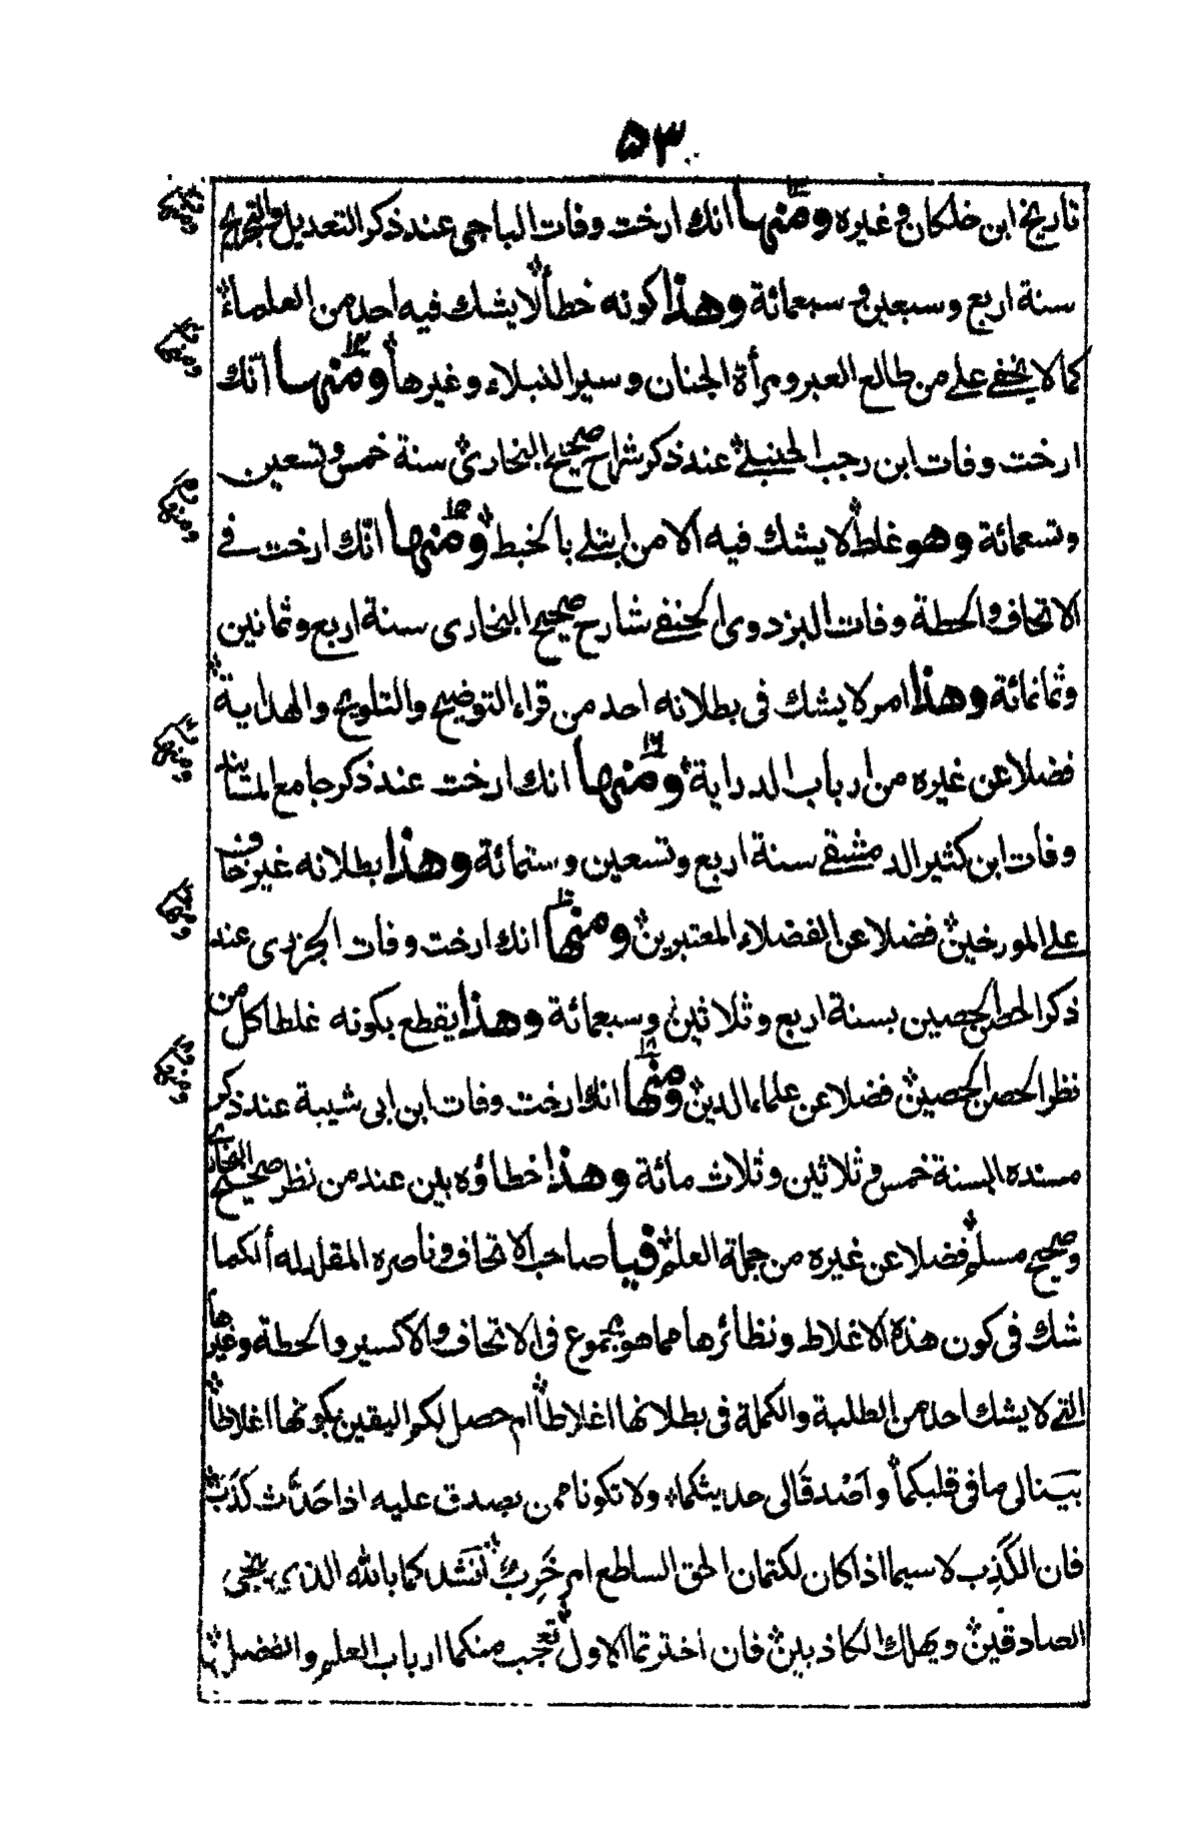 ٥٣
تاريخ ابن خلكان وغيره ومنها انك ارخت وفات الباجي عند ذكر التعديل والتجريح
سنة اربع وسبعين وسبعمائة وهذا كونه خطأ لا يشك فيه احد من العلماء
كما لا يخفى على من طالع العبر ومرأة الجنان وسير النبلاء وغيرها ومنها ١٣ انّك
ارخت وفات ابن رجب الحنبلي عند ذكر شراح صحيح البخاري سنة خمس وتسعين
وتسعمائة وهو غلط لا يشك فيه الا من ابتلى بالخبط ومنها ١٥ انّك ارخت في
الاتحاف والحطة وفات البزدوى الحنفي شارح صحيح البخارى سنة اربع وثمانين
وثمانمائة وهذا امر لا يشك فى بطلانه احد من قراء التوضيح والتلويح والهداية
فضلا عن غيره من ارباب الدراية ومنها ١٦ انك ارخت عند ذكر جامع المسانيد
وفات ابن كثير الدمشقي سنة اربع وتسعين وستمائة وهذا بطلانه غير خاف
على المورخين فضلا عن الفضلاء المعتبرين ومنها انك ارخت وفات الجزرى عند
ذكر الحصن الحصين بسنة اربع وثلاثين وسبعمائة وهذا يقطع بكونه غلطا كل من
نظر الحصن الحصين فضلا عن علماء الدين ومنها ١٨ انك ارخت وفات ابن ابى شيبة عند ذكر
مسنده بسنة خمس وثلاثين وثلاث مائة وهذا خطاؤه بين عند من نظر صحيح البخارى
وصحيح مسلم فضلا عن غيره من جملة العلم فيا صاحب الاتحاف وناصره المقلد له ألكما
شك فى كون هذه الاغلاط ونظائرها مما هو مجموع فى الاتحاف والاكسير والحطة وغيرها
التي لا يشك احد من الطلبة والكملة فى بطلانها اغلاطاً ام حصل لكم اليقين بكونها اغلاطاً
بَيّنا لى ما فى قلبكما واَصْدقَا لى حديثكما ولا تكونا ممن يصدق عليه اذا حَدَّث كَذَبَ
فان الكَذِب لا سيما اذا كان لكتمان الحق الساطع امر خَرِبٌ اَنشدكما بالله الذي ينجى
الصادقين ويهلك الكاذبين فان اخترتما الاول تعجب منكما ارباب العلم والفضل